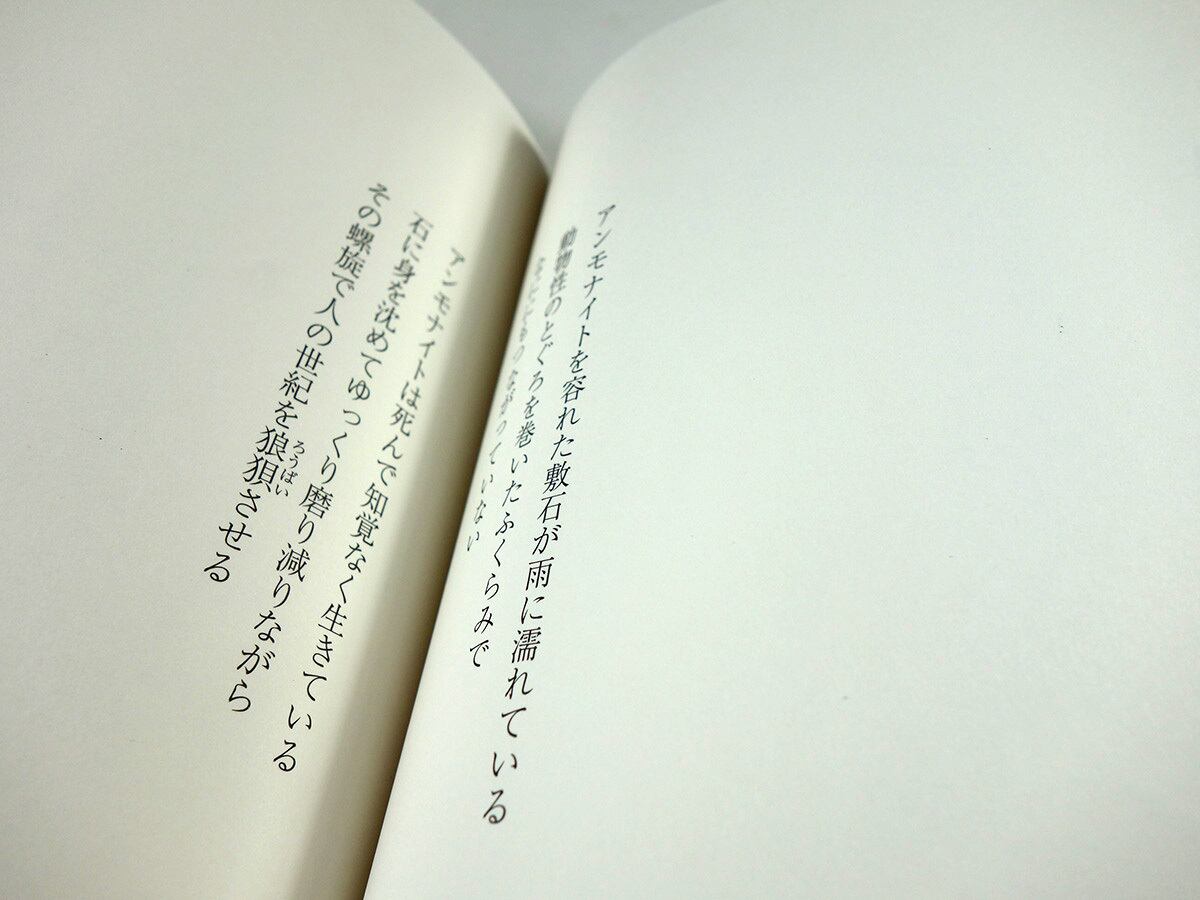 アンモナイトを容れた敷石が雨に濡れている
動物性のとぐろを巻いたふくらみで
なにともつながっていない
アンモナイトは死んで知覚なく生きている
石に身を沈めてゆっくり磨り減りながら
ろうばい
その螺旋で人の世紀を狼狽させる